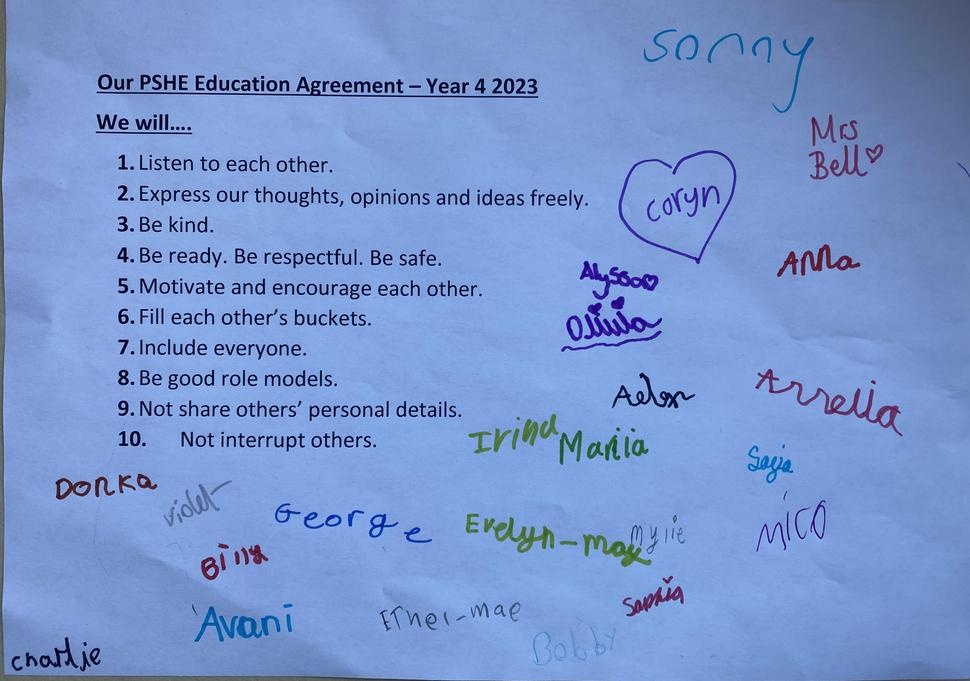 sonny
Our PSHE Education Agreement – Year 4 2023
We will….
Mrs
Bell
1. Listen to each other.
2. Express our thoughts, opinions and ideas freely.
coryn
3. Be kind.
4. Be ready. Be respectful. Be safe.
Anna
Alyssa
5. Motivate and encourage each other.
6. Fill each other's buckets.
Olivia
7. Include everyone.
8. Be good role models.
Arrella
9. Not share others' personal details.
10. Not interrupt others.
Irina
Mariia
DORKA
violet
George
Evelyn-may
mylie
MICO
Billy
Sophia
Avani
Bobby
charlie